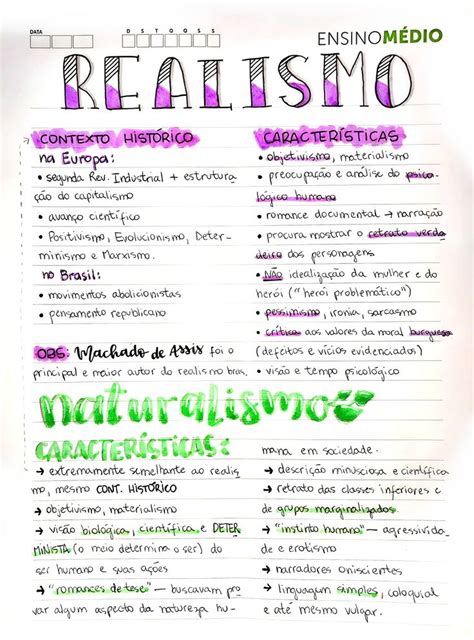 DATA
D S T Q Q S S
ENSINO MÉDIO
REALISMO
CONTEXTO HISTÓRICO
na Europa:
• segunda Rev. Industrial + estrutura
ção do capitalismo
• avanço científico
• Positivismo, Evolucionismo, Deter-
minismo e Marxismo.
no Brasil:
• movimentos abolicionistas
• pensamento republicano
OBS: Machado de Assis foi o
principal e maior autor do realismo bras.
CARACTERÍSTICAS
• objetivismo, materialismo
• preocupação e análise do psico
lógico humano
• romance documental → narração
• procura mostrar o retrato verda
deiro dos personagens
• NÃO idealização da mulher e do
herói ("herói problemático")
• pessimismo, ironia, sarcasmo
• crítica aos valores da moral burguesa
(defeitos e vícios evidenciados)
• visão e tempo psicológico
naturalismo
CARACTERÍSTICAS:
→ extremamente semelhante ao realis
mo, mesmo CONT. HISTÓRICO
→ objetivismo, materialismo
→ visão biológica, científica e DETER
MINISTA (o meio determina o ser) do
ser humano e suas ações
→ "romances de tese" — buscavam pro
var algum aspecto da natureza hu-
mana em sociedade.
→ descrição minusciosa e científica
→ retrato das classes inferiores e
de grupos marginalizados
→ "instinto humano" — agressivida-
de e erotismo
→ narradores oniscientes
→ linguagem simples, coloquial
e até mesmo vulgar.